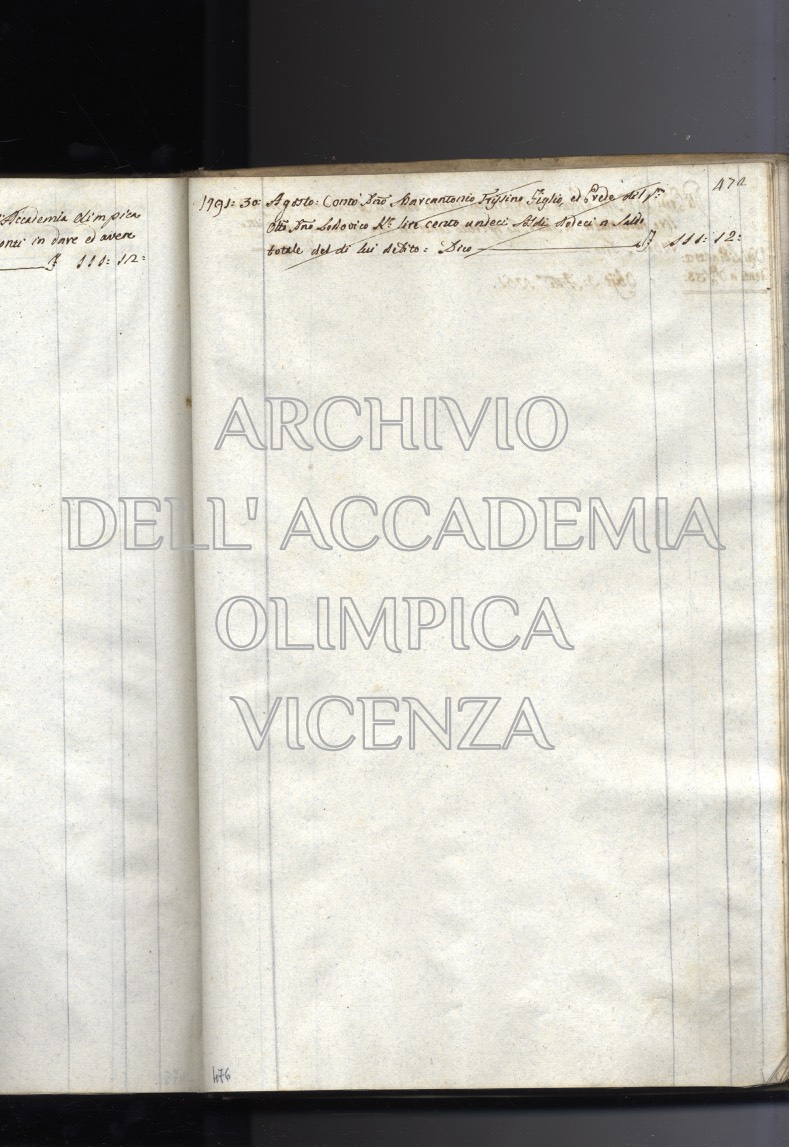 Accademia Olimpica
conti in dare ed avere
111: 12:
472
1791: 30: Agosto: Contò Marcantonio Trissino Figlio, ed Erede del
Lodovico lire cento undeci soldi dodeci a Saldo
totale del di lui debito: Dico 111: 12:
ARCHIVIO
DELL' ACCADEMIA
OLIMPICA
VICENZA
476